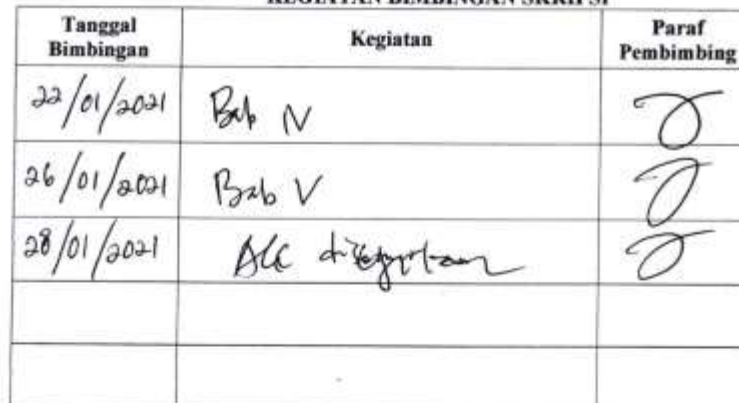 KEGIATAN BIMBINGAN SKRIPSI
Tanggal Bimbingan Kegiatan Paraf Pembimbing
22/01/2021 Bab IV
26/01/2021 Bab V
28/01/2021 ACC